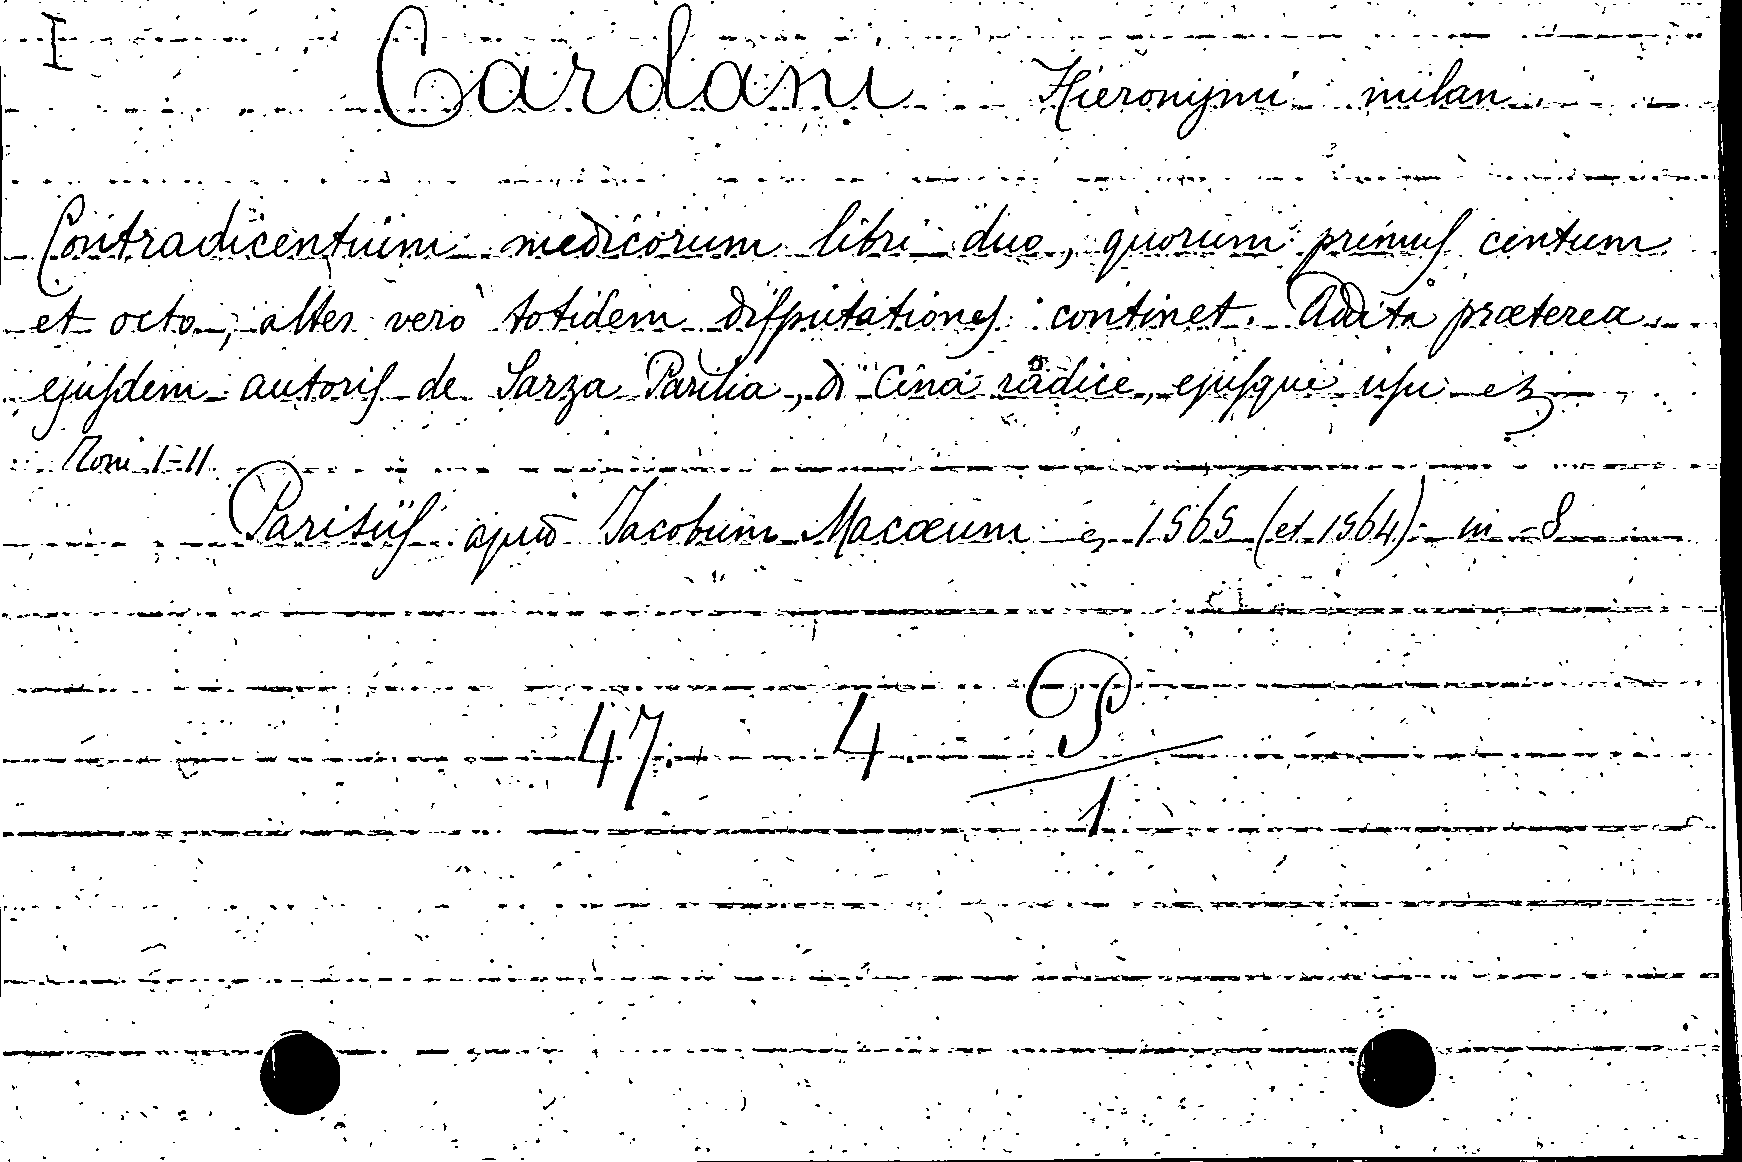 I Cardani Hieronymi milan.
Contradicentium medicorum libri duo, quorum primuſ centum
et octo, alter vero totidem diſputationeſ continet. Addita præterea
ejuſdem autoriſ de Sarza Parilia, d Cina radice, ejuſque uſu etz
Tomi I-II
Pariſiiſ apud Jacobum Macæum c, 1565 (et 1564) in 8
47 4 P
1